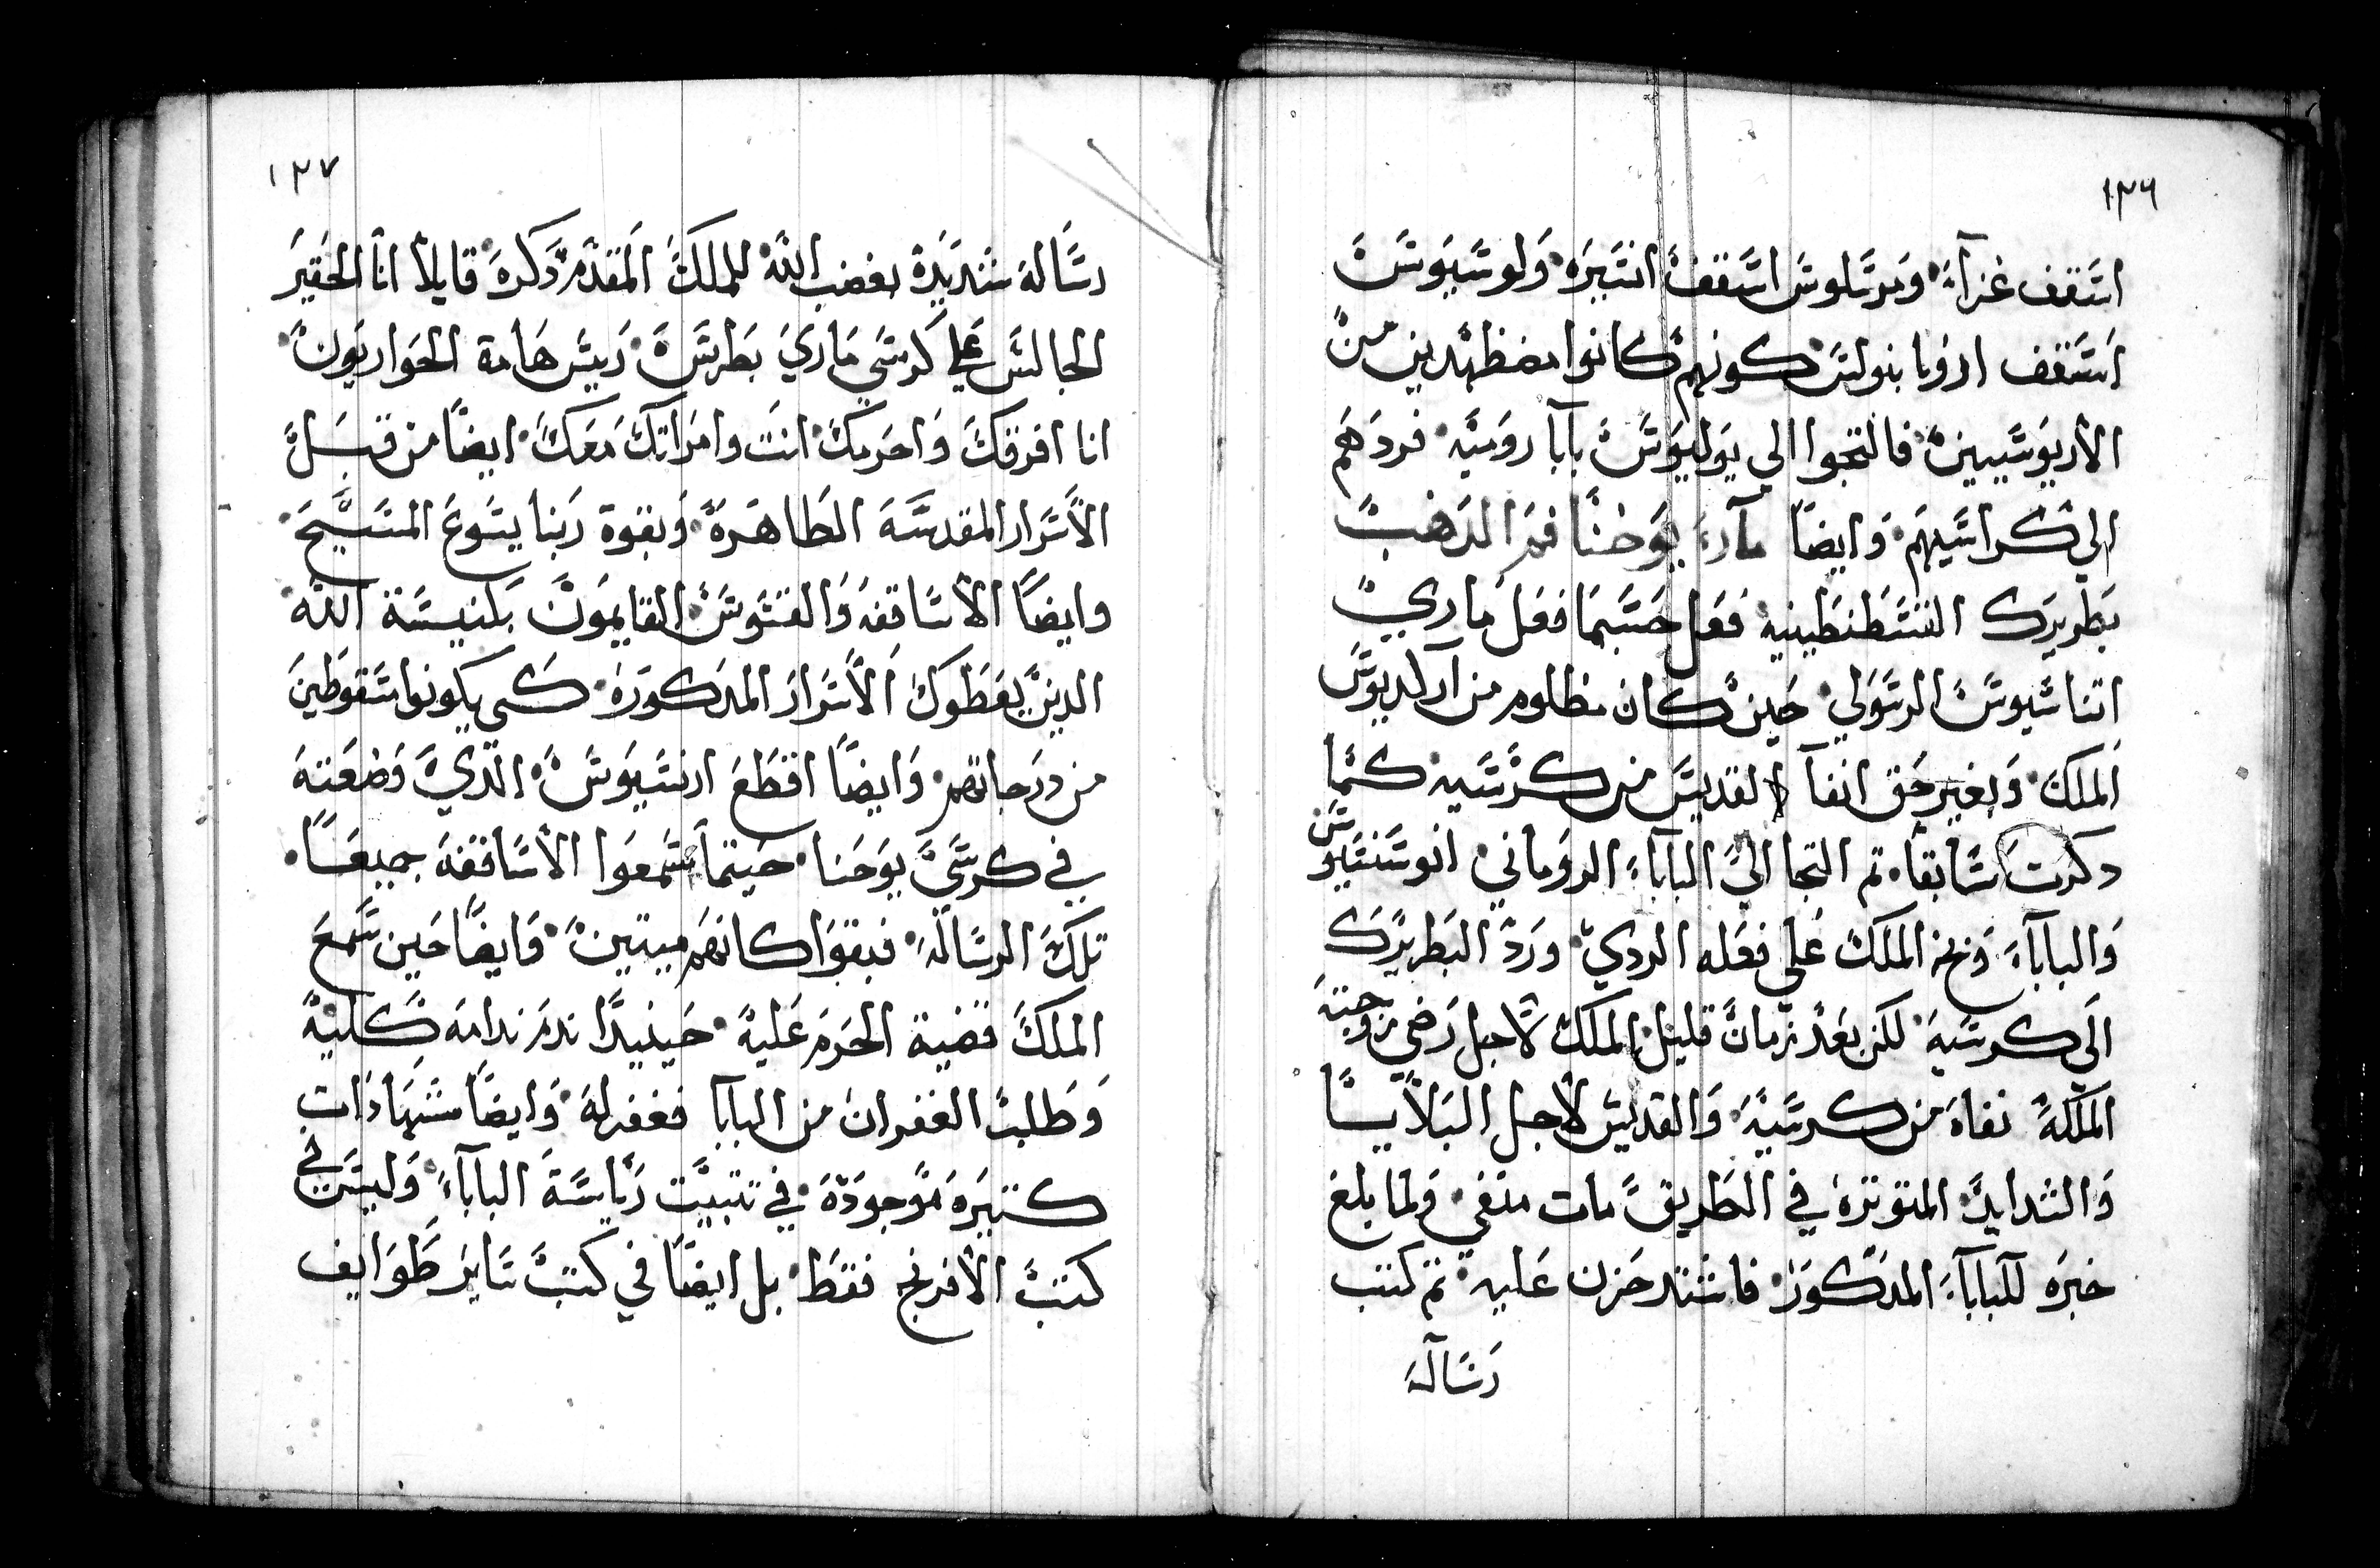 ١٣٦
اسقف غزاء. ومرسلوس اسقف انسيره. ولوسيوس
اسقف ادرنا بنولس. كونهم كانوا مضطهدين من
الاريوسيين. فالتجوا الي يوليوس بابا روميه. فردهم
الي كراسيهم. وايضا ماري يوحنا فم الدهب
بطريرك القسطنطينيه فعل حسبما فعل ماري
اتناسيوس الرسولي. حين كان مظلوم من آركاديوس
الملك. وبغير حق انفا القديس من كرسيه. كما
دكرت سابقا. تم التجا الي البابا الروماني. انوسنتيوس
والباباء ونخ الملك علي فعله الردي. ورد البطريرك
الي كرسيه. لكن بعد زمان قليل. الملك لاجل رضي زوجته
الملكة نفاه من كرسيه. والقديس لاجل البلايا
والشدايد المتوتره في الطريق مات منفي. ولما بلغ
خبره للباباء المدكور. فاشتد حزن عليه. تم كتب
رساله
١٣٧
رساله شديدة بغضب الله للملك المقدم دكره. قايلا انا الحقير
الجالس علي كرسي ماري بطرس. ريس هامة الحواريون.
انا افرقك واحرمك. انت وامراتك معك. ايضا من قبل
الاسرار المقدسه الطاهره. وبقوة ربنا يسوع المسيح.
وايضا الاساقفه والقسوس. القايمون بكنيسة الله.
الدين يعطوك الاسرار المدكوره. كي يكونوا سقوطين
من درجاتهم. وايضا اقطع ارسيوس. الدي وضعته
في كرسي يوحنا. حينما سمعوا الاساقفه جميعا.
تلك الرساله. فبقوا كانهم ميتين. وايضا حين سمع
الملك قضية الحرم عليه. حينيدا ندم ندامه كليه
وطلب الغفران من البابا فغفر له. وايضا شهادات
كتيره موجوده. في تتبيت رياسة الباباء. وليس في
كتب الافرنج فقط. بل ايضا في كتب ساير طوايف